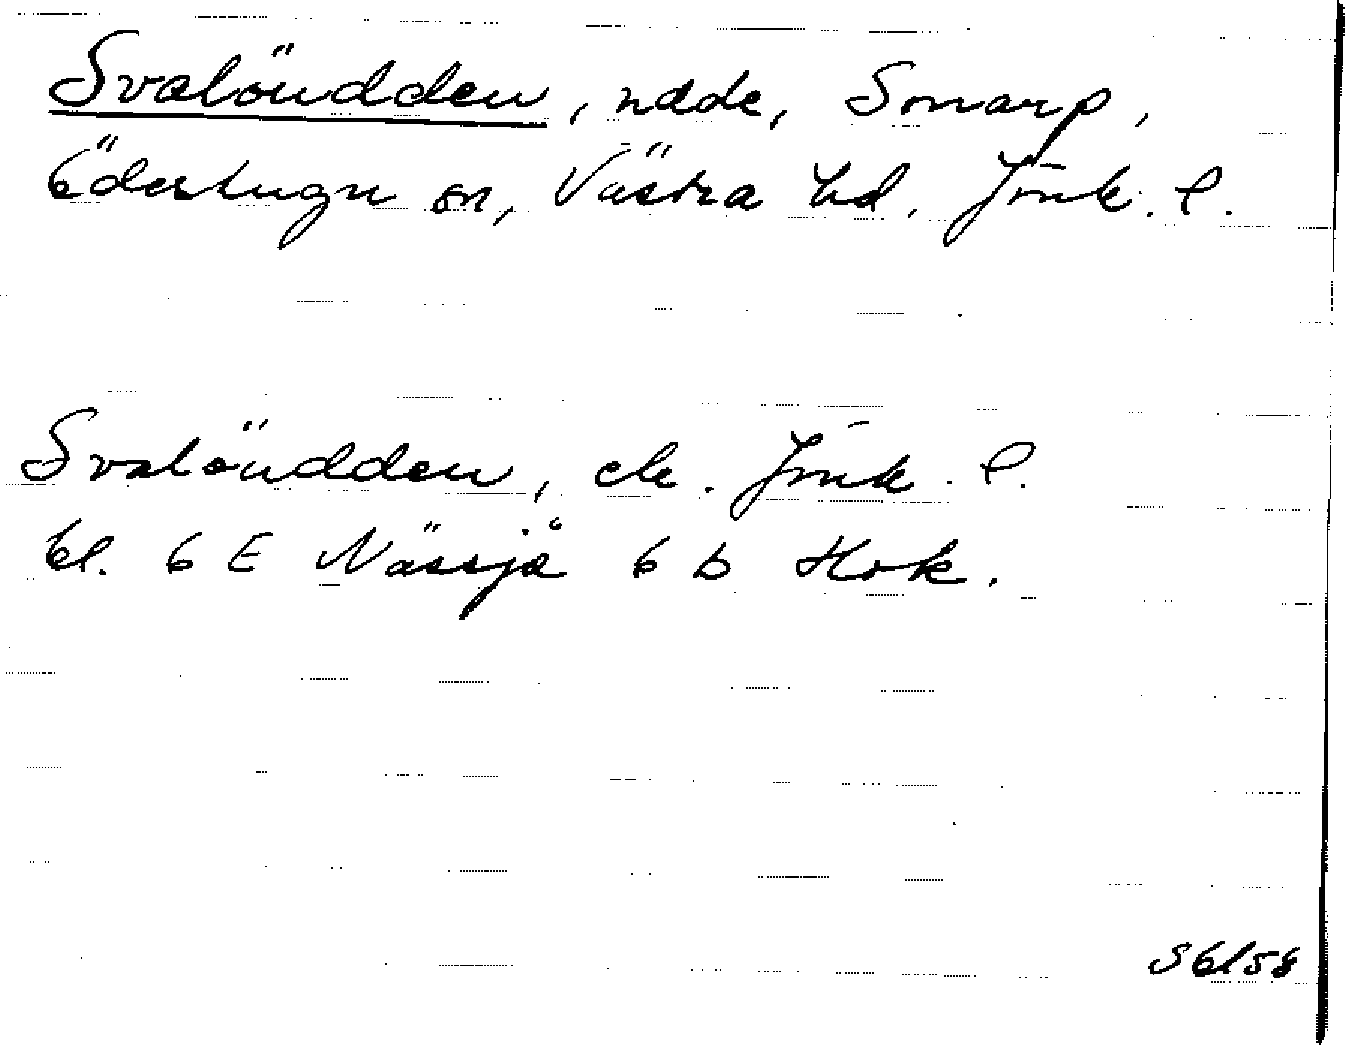 Svalöudden, udde, Smarp,
Ödestugu sn, Västra hd, Jönk. l.
Svalöudden, ek. Jönk. l.
bl. 6 E Nässjö 6 b Hok.
S6/58